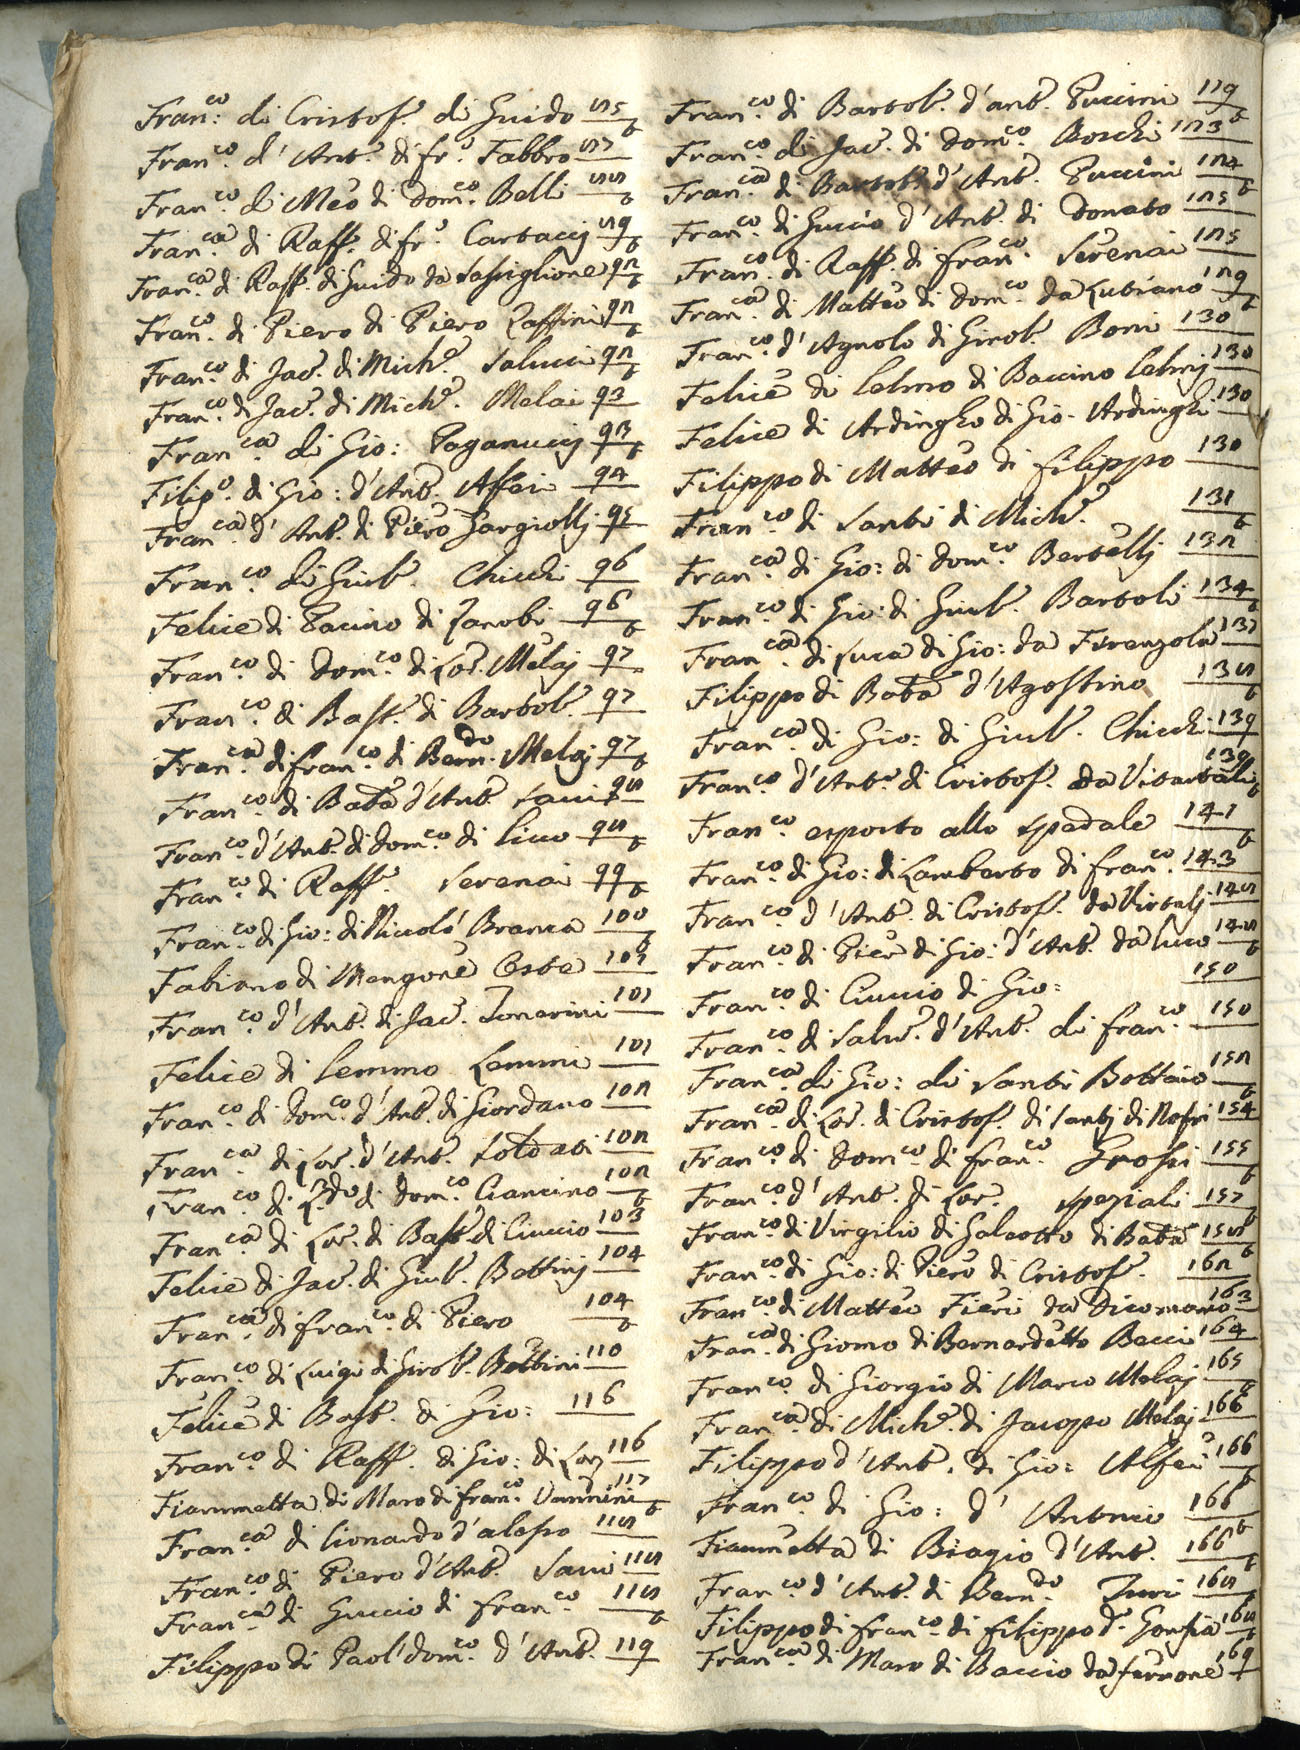 Fran:co di Cristof.o di Guido 85 t
Fran.co d'Ant.o di fr.o Fabbro 87
Fran.co di Meo di Dom.co Belli 88 t
Fran.ca di Raff. di fr.o Cartacci 89 t
Fran.ca di Raff. di Guido da Vassiglione 92 t
Fran.co di Piero di Piero Zaffini 92 t
Fran.co di Jac.o di Mich.e Salucci 92 t
Fran.co di Jac.o di Mich.e Melai 93
Fran.ca di Gio: Paganucij 93 t
Filip.o di Gio: d'Ant.o Alfei 94
Fran.ca d'Ant.o di Piero Gargiollj 95
Fran.co di Giul.o Chicchi 96
Felice di Pacino di Zanobi 96 t
Fran.co di Dom.co di Lor.o Melaj 97
Fran.co di Bast.o di Bartol.o 97
Fran.ca di fran.co di Bern.do Melaj 97 t
Fran.co di Bat.a d'Ant.o 98
Fran.co d'Ant.o di Dom.co di Licco 98 t
Fran.co di Raff.o Serenai 99 t
Fran.co di Gio: di Niccolò Branca 100 t
Fabiano di Mangone Costa 101
Fran.co d'Ant.o di Jac.o Tonarini 101
Felice di Lemmo Lemmi 101
Fran.co di Dom.co d'Ant.o di Giordano 102
Fran.ca di Lor.o d'Ant.o Soldati 102
Fran.co di di Dom.co Ciancino 102 t
Fran.ca di Lor.o di Bast.o di Ciuccio 103
Felice di Jac.o di Giul.o Bottinj 104
Fran.ca di fran.co di Piero 104 t
Fran.co di Luigi di Girol.o Bettini 110
Felice di Bast.o di Gio: 116
Fran.co di Raff.o di Gio: di Lor.o 116
Fiammetta di Maro di fran.co Vannini 117 t
Fran.ca di Lionardo d'Alesso 118
Fran.co di Piero d'Ant.o Savi 118
Fran.ca di Guccio di fran.co 118 t
Filippo di Paol' Dom.co d'Ant.o 119
Fran.co di Bartol.o d'Ant.o Puccini 119 t
Fran.co di Jac.o di Dom.co Boschi 123
Fran.ca di Bartol.o d'Ant.o Puccini 124 t
Fran.co di Guccio d'Ant.o di Donato 125
Fran.co di Raff. di fran.co Serenai 125
Fran.ca di Matteo di Dom.co da Lubiano 129 t
Fran.co d'Agnolo di Girol.o Boni 130
Felice di Lelmo di Baccino Lelmj 130
Felice di Ardingho di Gio. Ardinghi 130
Filippo di Matteo di filippo 130
Fran.co di Santi di Mich.e 131 t
Fran.ca di Gio: di Dom.co Bertellj 132
Fran.co di Gio: di Giul.o Bartoli 134 t
Fran.ca di Luca di Gio: da Firenzola 137
Filippo di Bat.a d'Agostino 138 t
Fran.ca di Gio: di Giul.o Chicchi 139
Fran.co d'Ant.o di Cristof.o da 139 t
Fran.co esposto allo spedale 141 t
Fran.co di Gio: di Lamberto di fran.co 143
Fran.co d'Ant.o di Cristof.o da 148
Fran.co di Pier di Gio: d'Ant.o da Luco 148 t
Fran.co di Ciuccio di Gio: 150
Fran.co di Salv.e d'Ant.o di fran.co 150
Fran.ca di Gio: di Santi Bottaio 152 t
Fran.ca di Lor.o di Cristof.o di Santj di Nofri 154
Fran.co di Dom.co di fran.co Grossi 155 t
Fran.co d'Ant.o di Lor.o Speziali 157 t
Fran.co di Virgilio di Galeotto di Bat.a 158 t
Fran.co di Gio: di Piero di Cristof.o 162
Fran.co di Matteo Fieri da Dicomano 163
Fran.ca di Giomo di Bernardetto Becci 164
Fran.co di Giorgio di Marco Melaj 165 t
Fran.ca di Mich.e di Jacopo Melaj 166
Filippo d'Ant.o di Gio: Alfei 166 t
Fran.co di Gio: d'Antonio 166 t
Fiammetta di Biagio d'Ant.o 166 t
Fran.co d'Ant.o di Bern.do Turi 168
Filippo di fran.co di filippo 168 t
Fran.ca di Maro di Baccio da ferrone 169